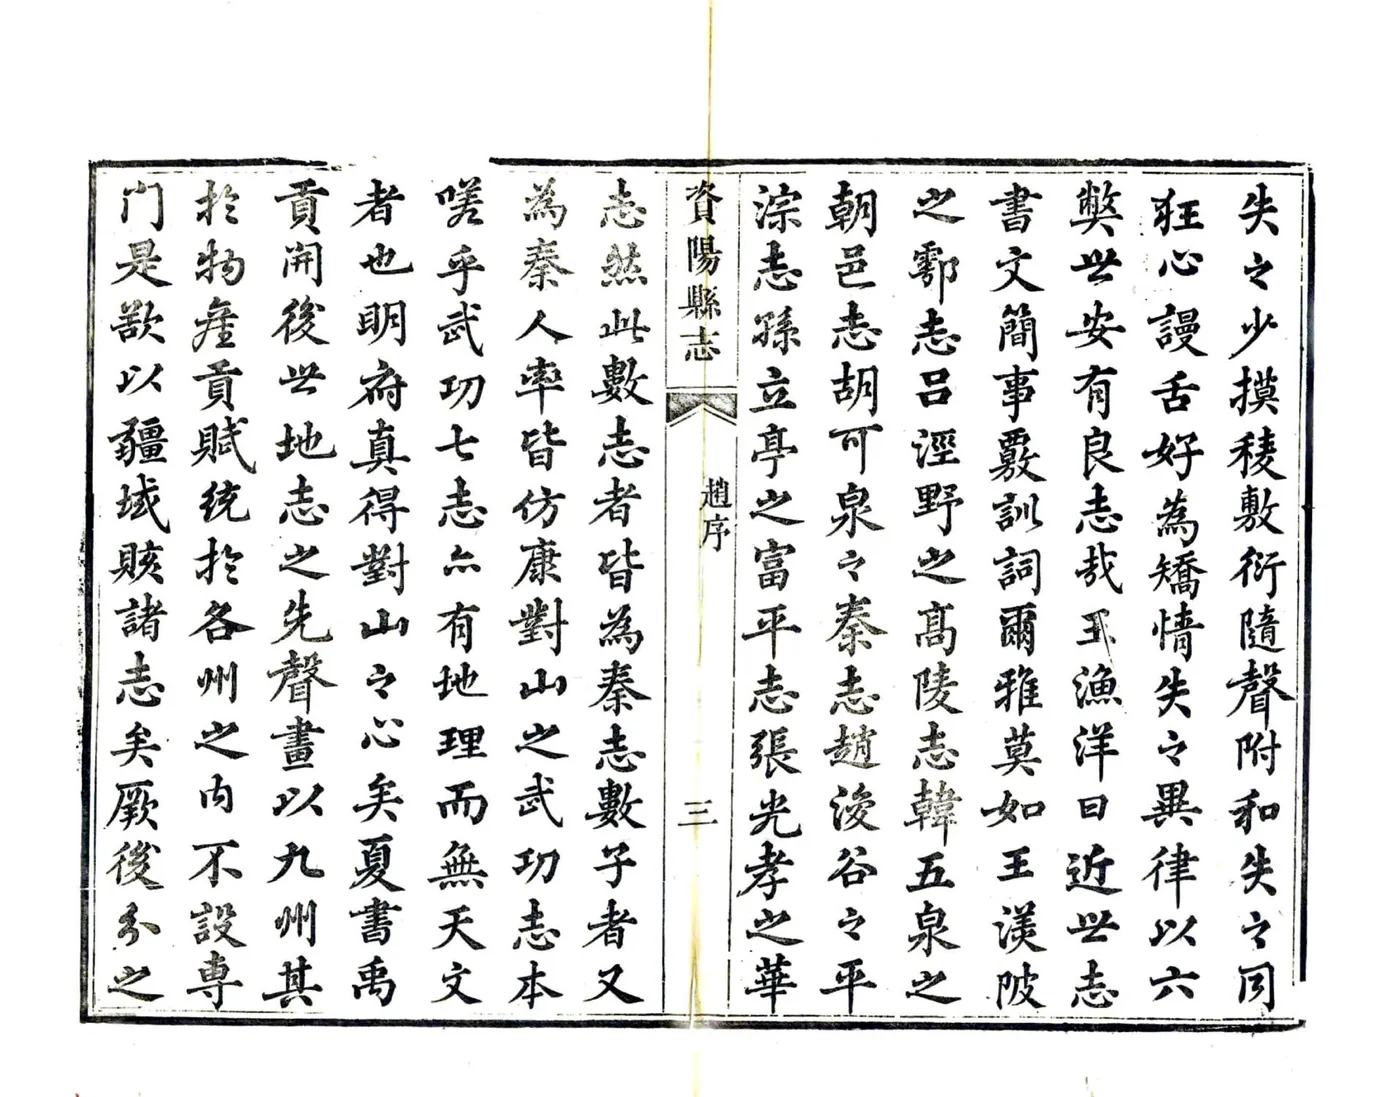 失之少摸稜敷衍隨聲附和失之同
狂心謾舌好為矯情失之異律以六
獘世安有良志哉王漁洋曰近世志
書文簡事覈訓詞爾雅莫如王渼陂
之鄠志吕涇野之髙陵志韓五泉之
朝邑志胡可泉之秦志趙浚谷之平
淙志孫立亭之富平志張光孝之華
資陽縣志
趙序
三
志然此數志者皆為秦志數子者又
為秦人率皆仿康對山之武功志本
嗟乎武功七志亦有地理而無天文
者也明府真得對山之心矣夏書禹
貢開後世地志之先聲畫以九州其
於物產貢賦統於各州之内不設専
門是欲以疆域賅諸志矣厥後分之